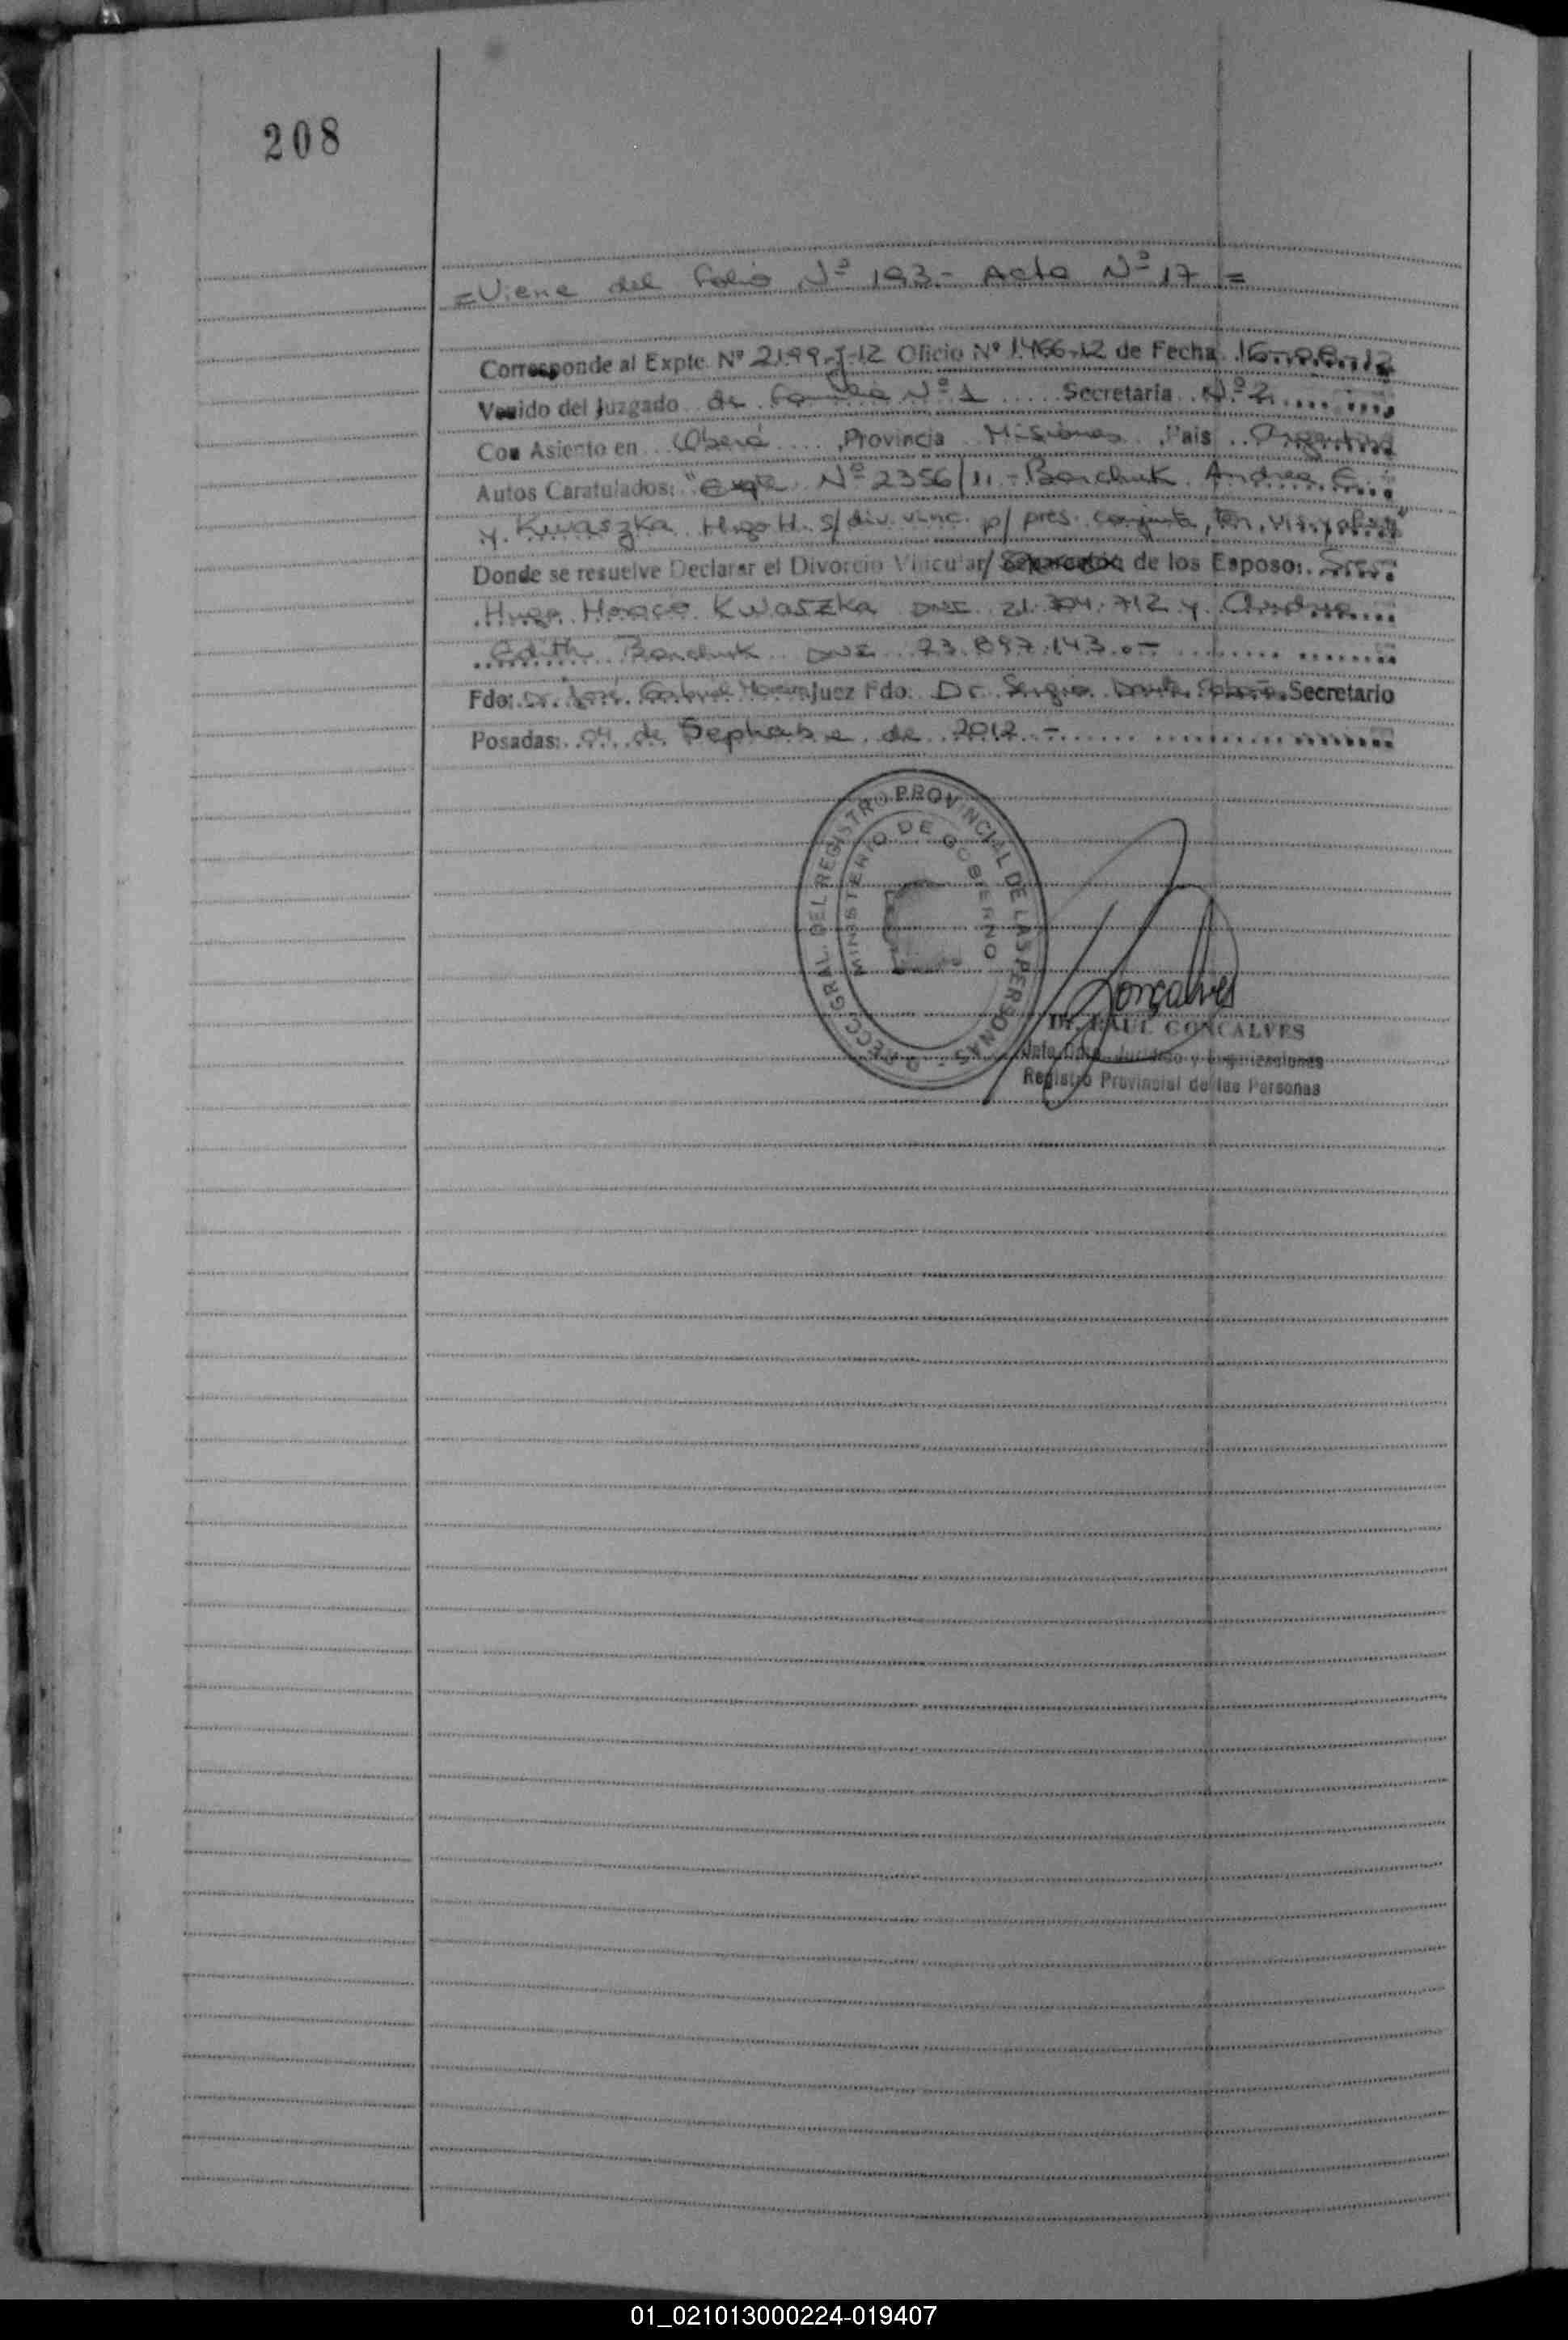 208
= Viene del folio Nº 193.- Acta Nº 17 =
Corresponde al Expte. Nº 2199-J-12 Oficio Nº 1466-12 de Fecha 16-08-12
Venido del Juzgado de Familia Nº 1 Secretaría Nº 2
Con Asiento en Oberá Provincia Misiones País Argentina
Autos Caratulados: "Expte Nº 2356/11.- Bonchuk Andrea E.
y Kwaszka Hugo H. s/ div. vinc. p/ pres. conjunta, ten,
Donde se resuelve Declarar el Divorcio Vincular/ Separación de los Esposo: Sres.
Hugo Horacio Kwaszka DNI 21.304.712 y Andrea
Edith Bonchuk DNI 23.897.143.-
Fdo: Dr. José Gabriel Juez Fdo: Dr. Sergio Secretario
Posadas: 04 de Septiembre de 2012.-
DIRECC. GRAL. DEL REGISTRO PROVINCIAL DE LAS PERSONAS
MINISTERIO DE GOBIERNO
Gonçalves
Dr. RAUL GONCALVES
Jefe Dpto. Jurídico y
Registro Provincial de las Personas
01_021013000224-019407